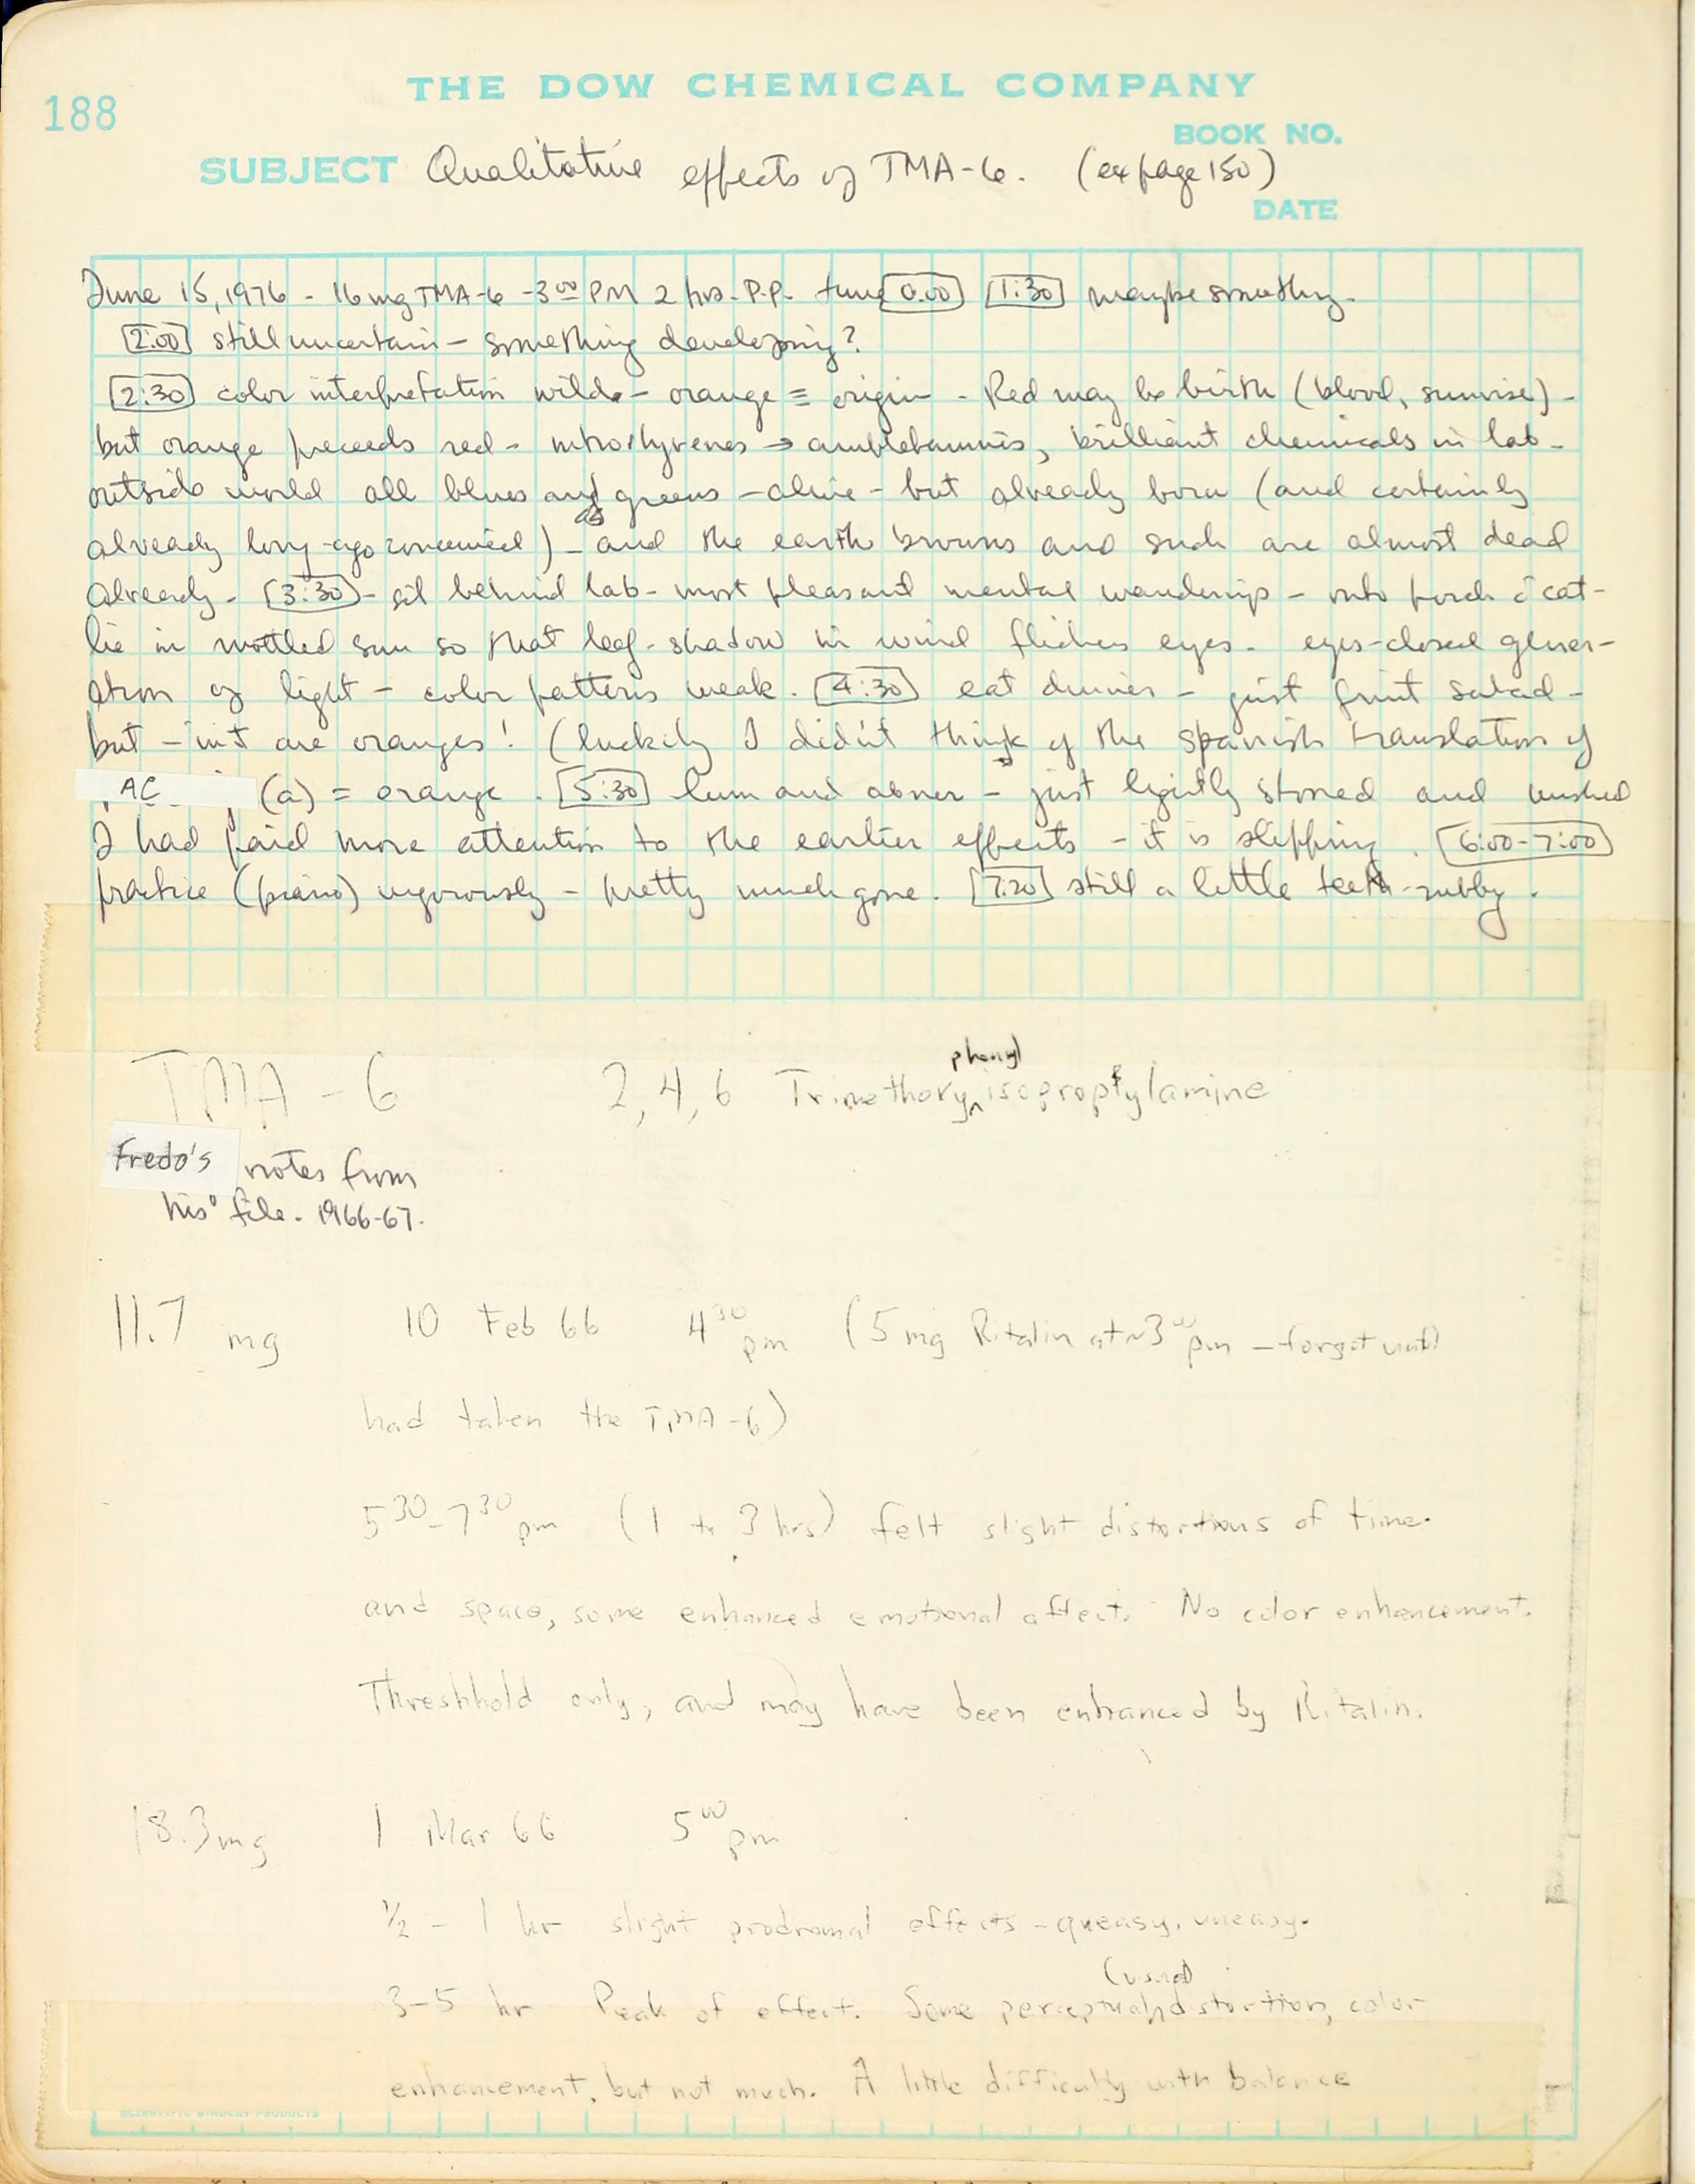 188
THE DOW CHEMICAL COMPANY
BOOK NO.
SUBJECT Qualitative effects of TMA-6. (ex page 150)
DATE
June 15, 1976 - 16 mg TMA-6 - 3:00 PM 2 hrs. P.P. time [0:00] [1:30] maybe something.
[2:00] still uncertain - something developing?
[2:30] color interpretation wild - orange ≡ origin - Red may be birth (blood, sunrise) -
but orange preceeds red - nitrostyrenes → amphetamines, brilliant chemicals in lab -
outside world all blues and greens - alive - but already born (and certainly
already long-ago conceived) - and the earth browns and such are almost dead
already. [3:30] - sit behind lab - most pleasant mental wanderings - onto porch c̄ cat -
lie in mottled sun so that leaf-shadow in wind flickers eyes. eyes-closed gener-
ation of light - color patterns weak. [4:30] eat dinner - just fruit salad -
but - in it are oranges! (luckily I didn't think of the spanish translation of
AC (a) = orange. [5:30] lum and abner - just lightly stoned and wished
I had paid more attention to the earlier effects - it is slipping. [6:00-7:00]
practice (piano) vigorously - pretty much gone. [7:20] still a little teeth-rubby.
TMA-6 2,4,6 Trimethoxy phenyl isopropylamine
Fredo's notes from
his file. 1966-67.
11.7 mg 10 Feb 66 4 30 pm (5 mg Ritalin at ~3 00 pm - forgot until
had taken the TMA-6)
5 30 - 7 30 pm (1 to 3 hrs) felt slight distortions of time
and space, some enhanced emotional affect. No color enhancement.
Threshhold only, and may have been enhanced by Ritalin.
18.3 mg 1 Mar 66 5 00 pm
1/2 - 1 hr slight prodromal effects - queasy, uneasy.
3-5 hr Peak of effect. Some perceptual (visual) distortion, color
enhancement, but not much. A little difficulty with balance
SCIENTIFIC BINDERY PRODUCTS